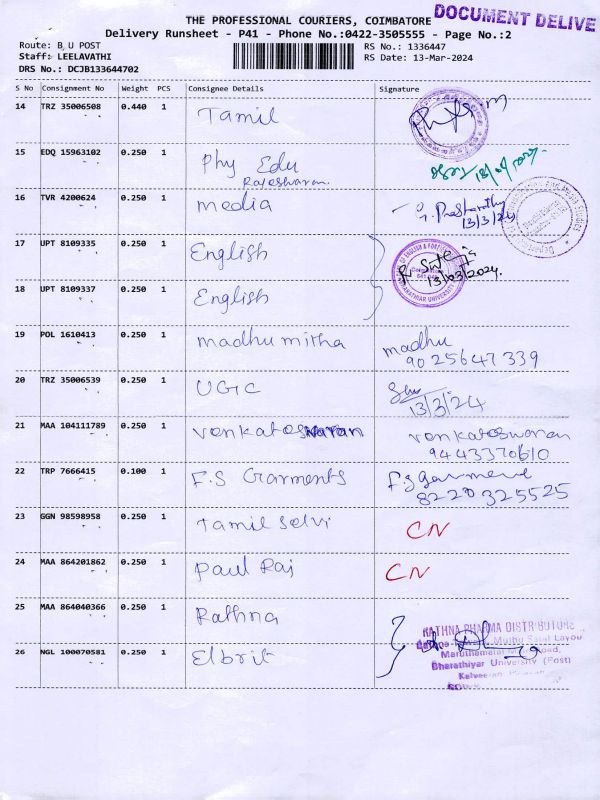 THE PROFESSIONAL COURIERS, COIMBATORE
DOCUMENT DELIVE
Delivery Runsheet - P41 - Phone No.:0422-3505555 - Page No.:2
Route: B U POST
RS No.: 1336447
Staff: LEELAVATHI
RS Date: 13-Mar-2024
DRS No.: DCJB133644702
S No Consignment No Weight PCS Consignee Details Signature
14 TRZ 35006508 0.440 1 Tamil
15 EDQ 15963102 0.250 1 Phy Edu
Rajeshwaran
16 TVR 4200624 0.250 1 media
13/3/24
17 UPT 8109335 0.250 1 English
13/03/2024.
18 UPT 8109337 0.250 1 English
19 POL 1610413 0.250 1 madhu mitha madhu
90 25647 339
20 TRZ 35006539 0.250 1 UGC
13/3/24
21 MAA 104111789 0.250 1 venkateswaran venkateswaran
9443370610
22 TRP 7666415 0.100 1 F.S Garments F.S garment
8220 325525
23 GGN 98598958 0.250 1 Tamil Selvi CN
24 MAA 864201862 0.250 1 Paul Raj CN
25 MAA 864040366 0.250 1 Rathna
RATHNA PHARMA DISTRIBUTORS
26 NGL 100070581 0.250 1 Elbrit
Bharathiyar University (Post)